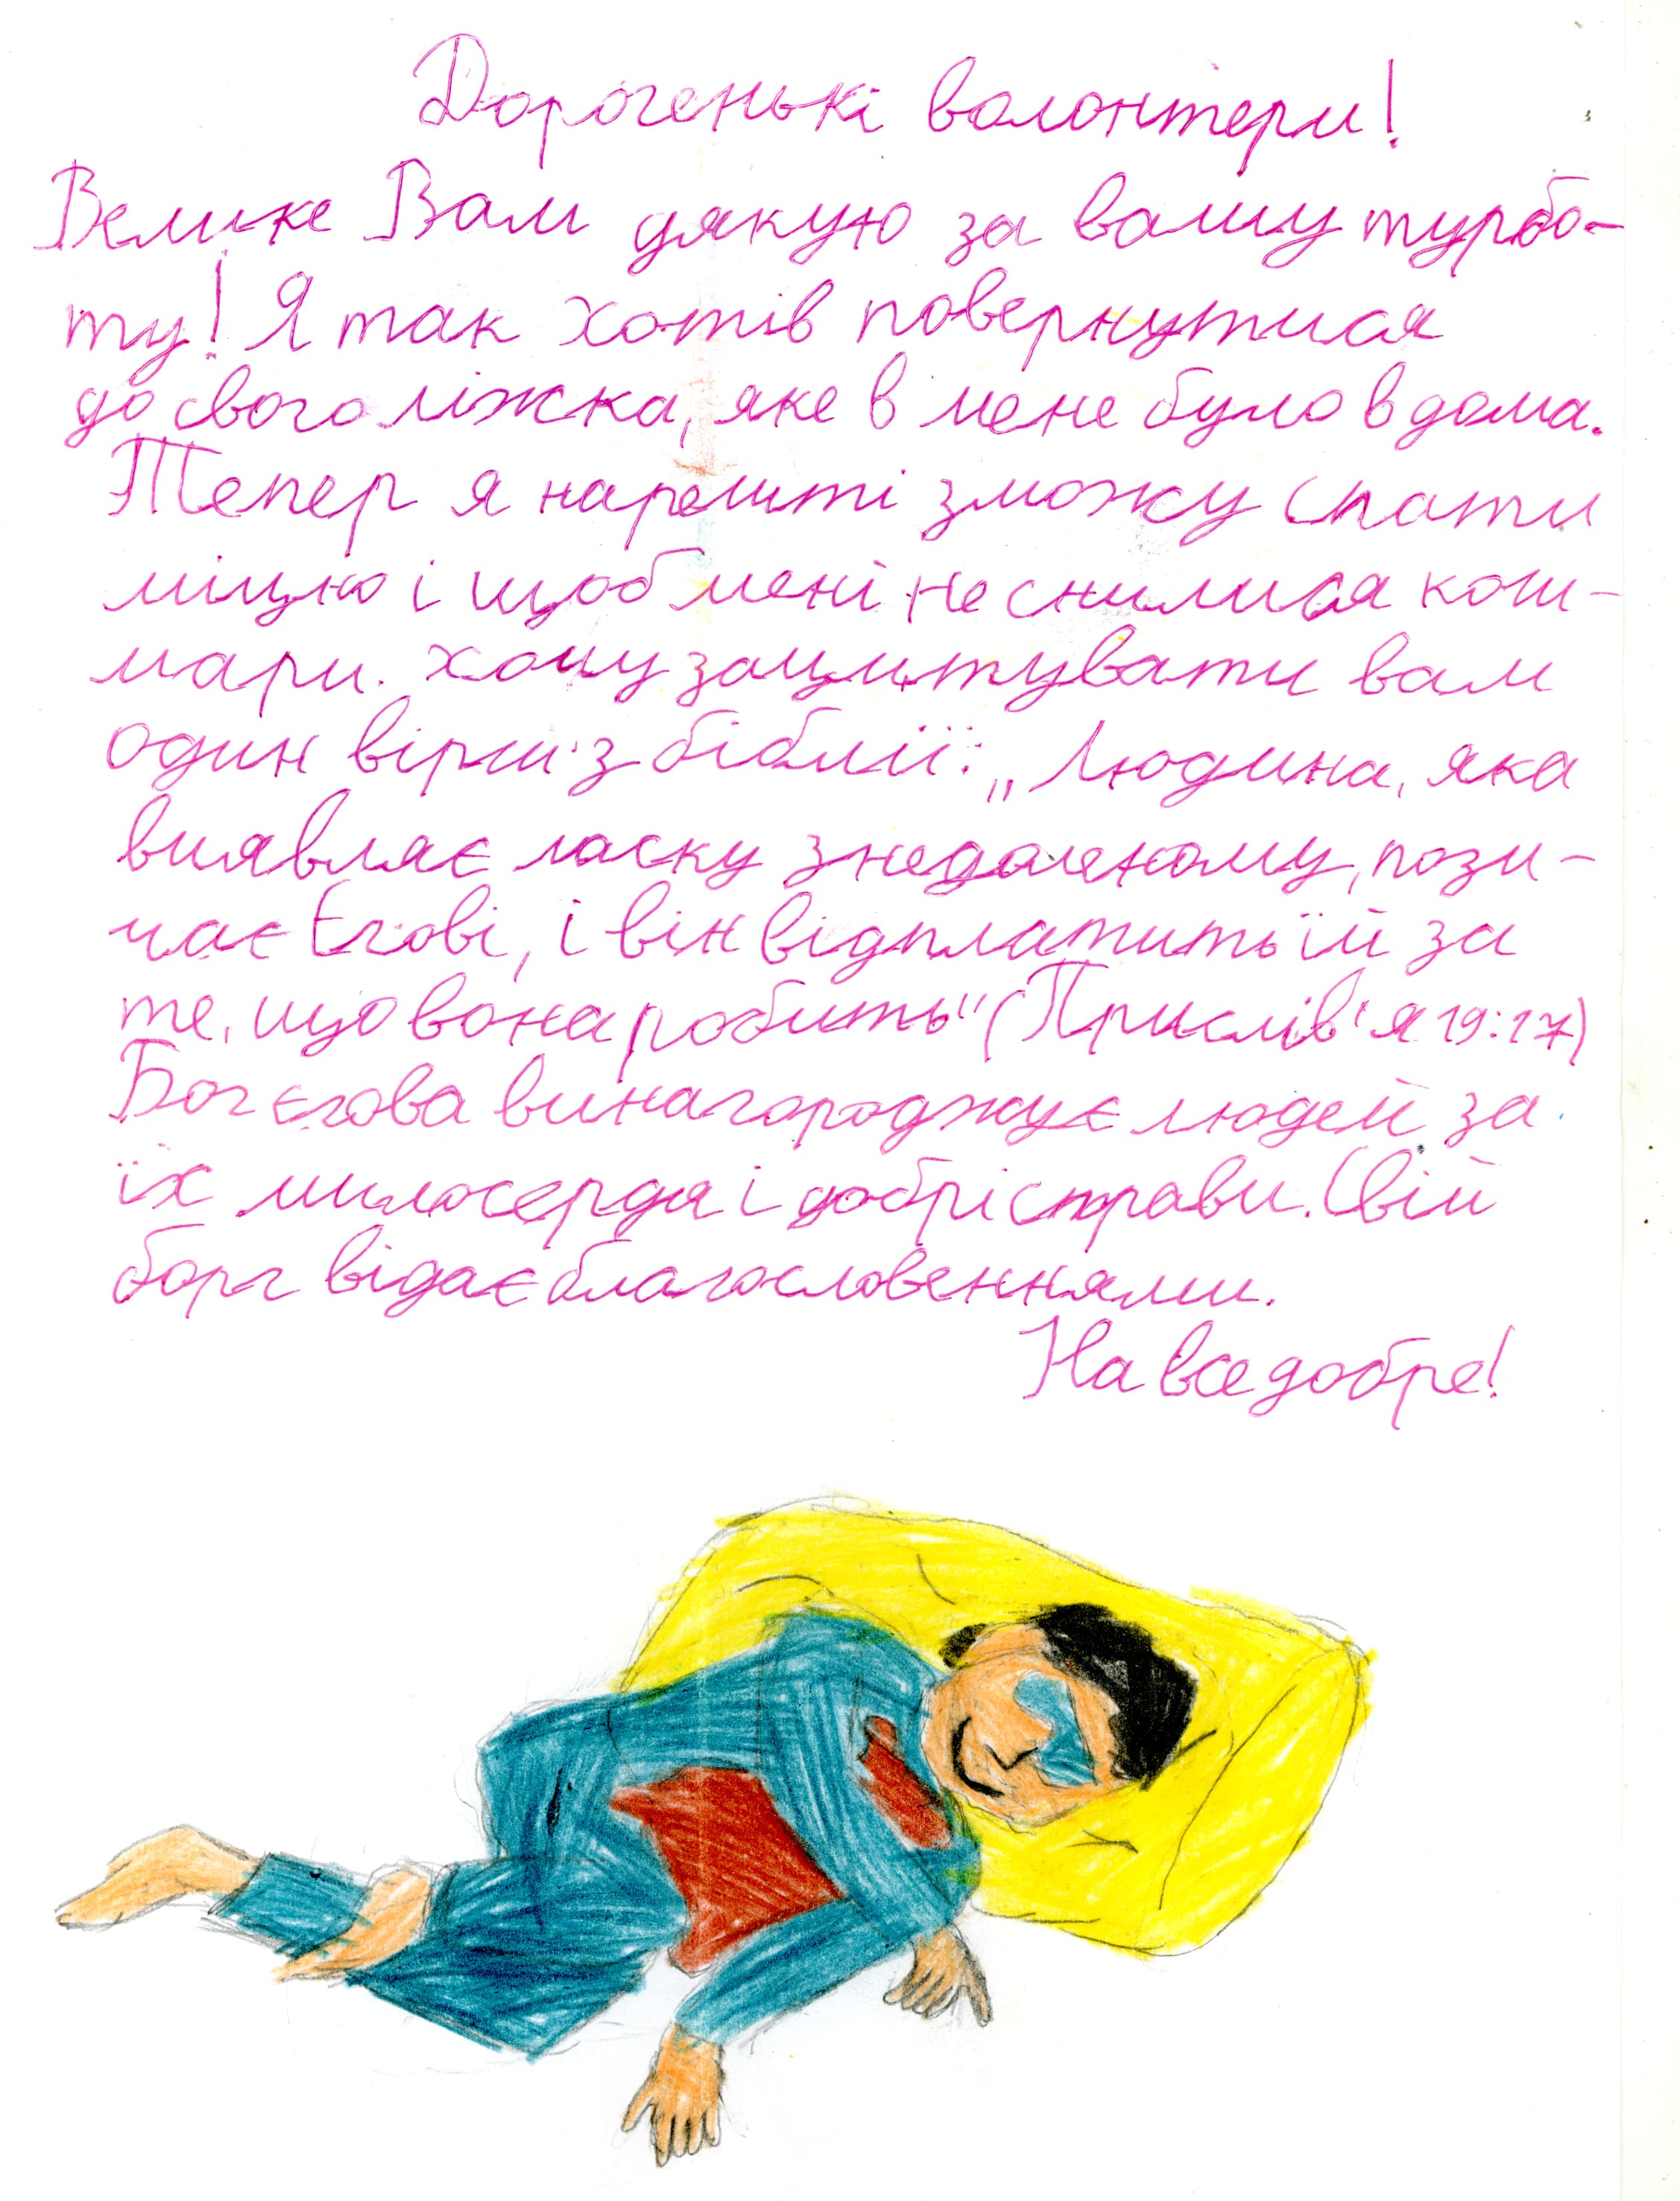 Дорогенькі волонтери!
Велике Вам дякую за вашу турбо-
ту! Я так хотів повернутися
до свого ліжка, яке в мене було вдома.
Тепер я нарешті зможу спати
міцно і щоб мені не снилися кош-
мари. Хочу зацитувати вам
один вірш з біблії: „Людина, яка
виявляє ласку знедоленому, пози-
чає Єгові, і він відплатить їй за
те, що вона робить" (Прислів'я 19:17)
Бог Єгова винагороджує людей за
їх милосердя і добрі справи. Свій
борг відає благословеннями.
На все добре!